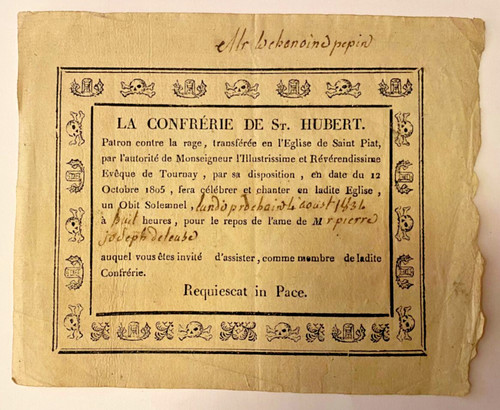 Mr le chanoine pepin
LA CONFRÉRIE DE ST. HUBERT.
Patron contre la rage, transférée en l'Eglise de Saint Piat,
par l'autorité de Monseigneur l'Illustrissime et Révérendissime
Evêque de Tournay, par sa disposition, en date du 12
Octobre 1805, fera célébrer et chanter en ladite Eglise,
un Obit Solemnel, lundi prochain aoust
à huit heures, pour le repos de l'ame de Mr pierre
joseph
auquel vous êtes invité d'assister, comme membre de ladite
Confrérie.
Requiescat in Pace.